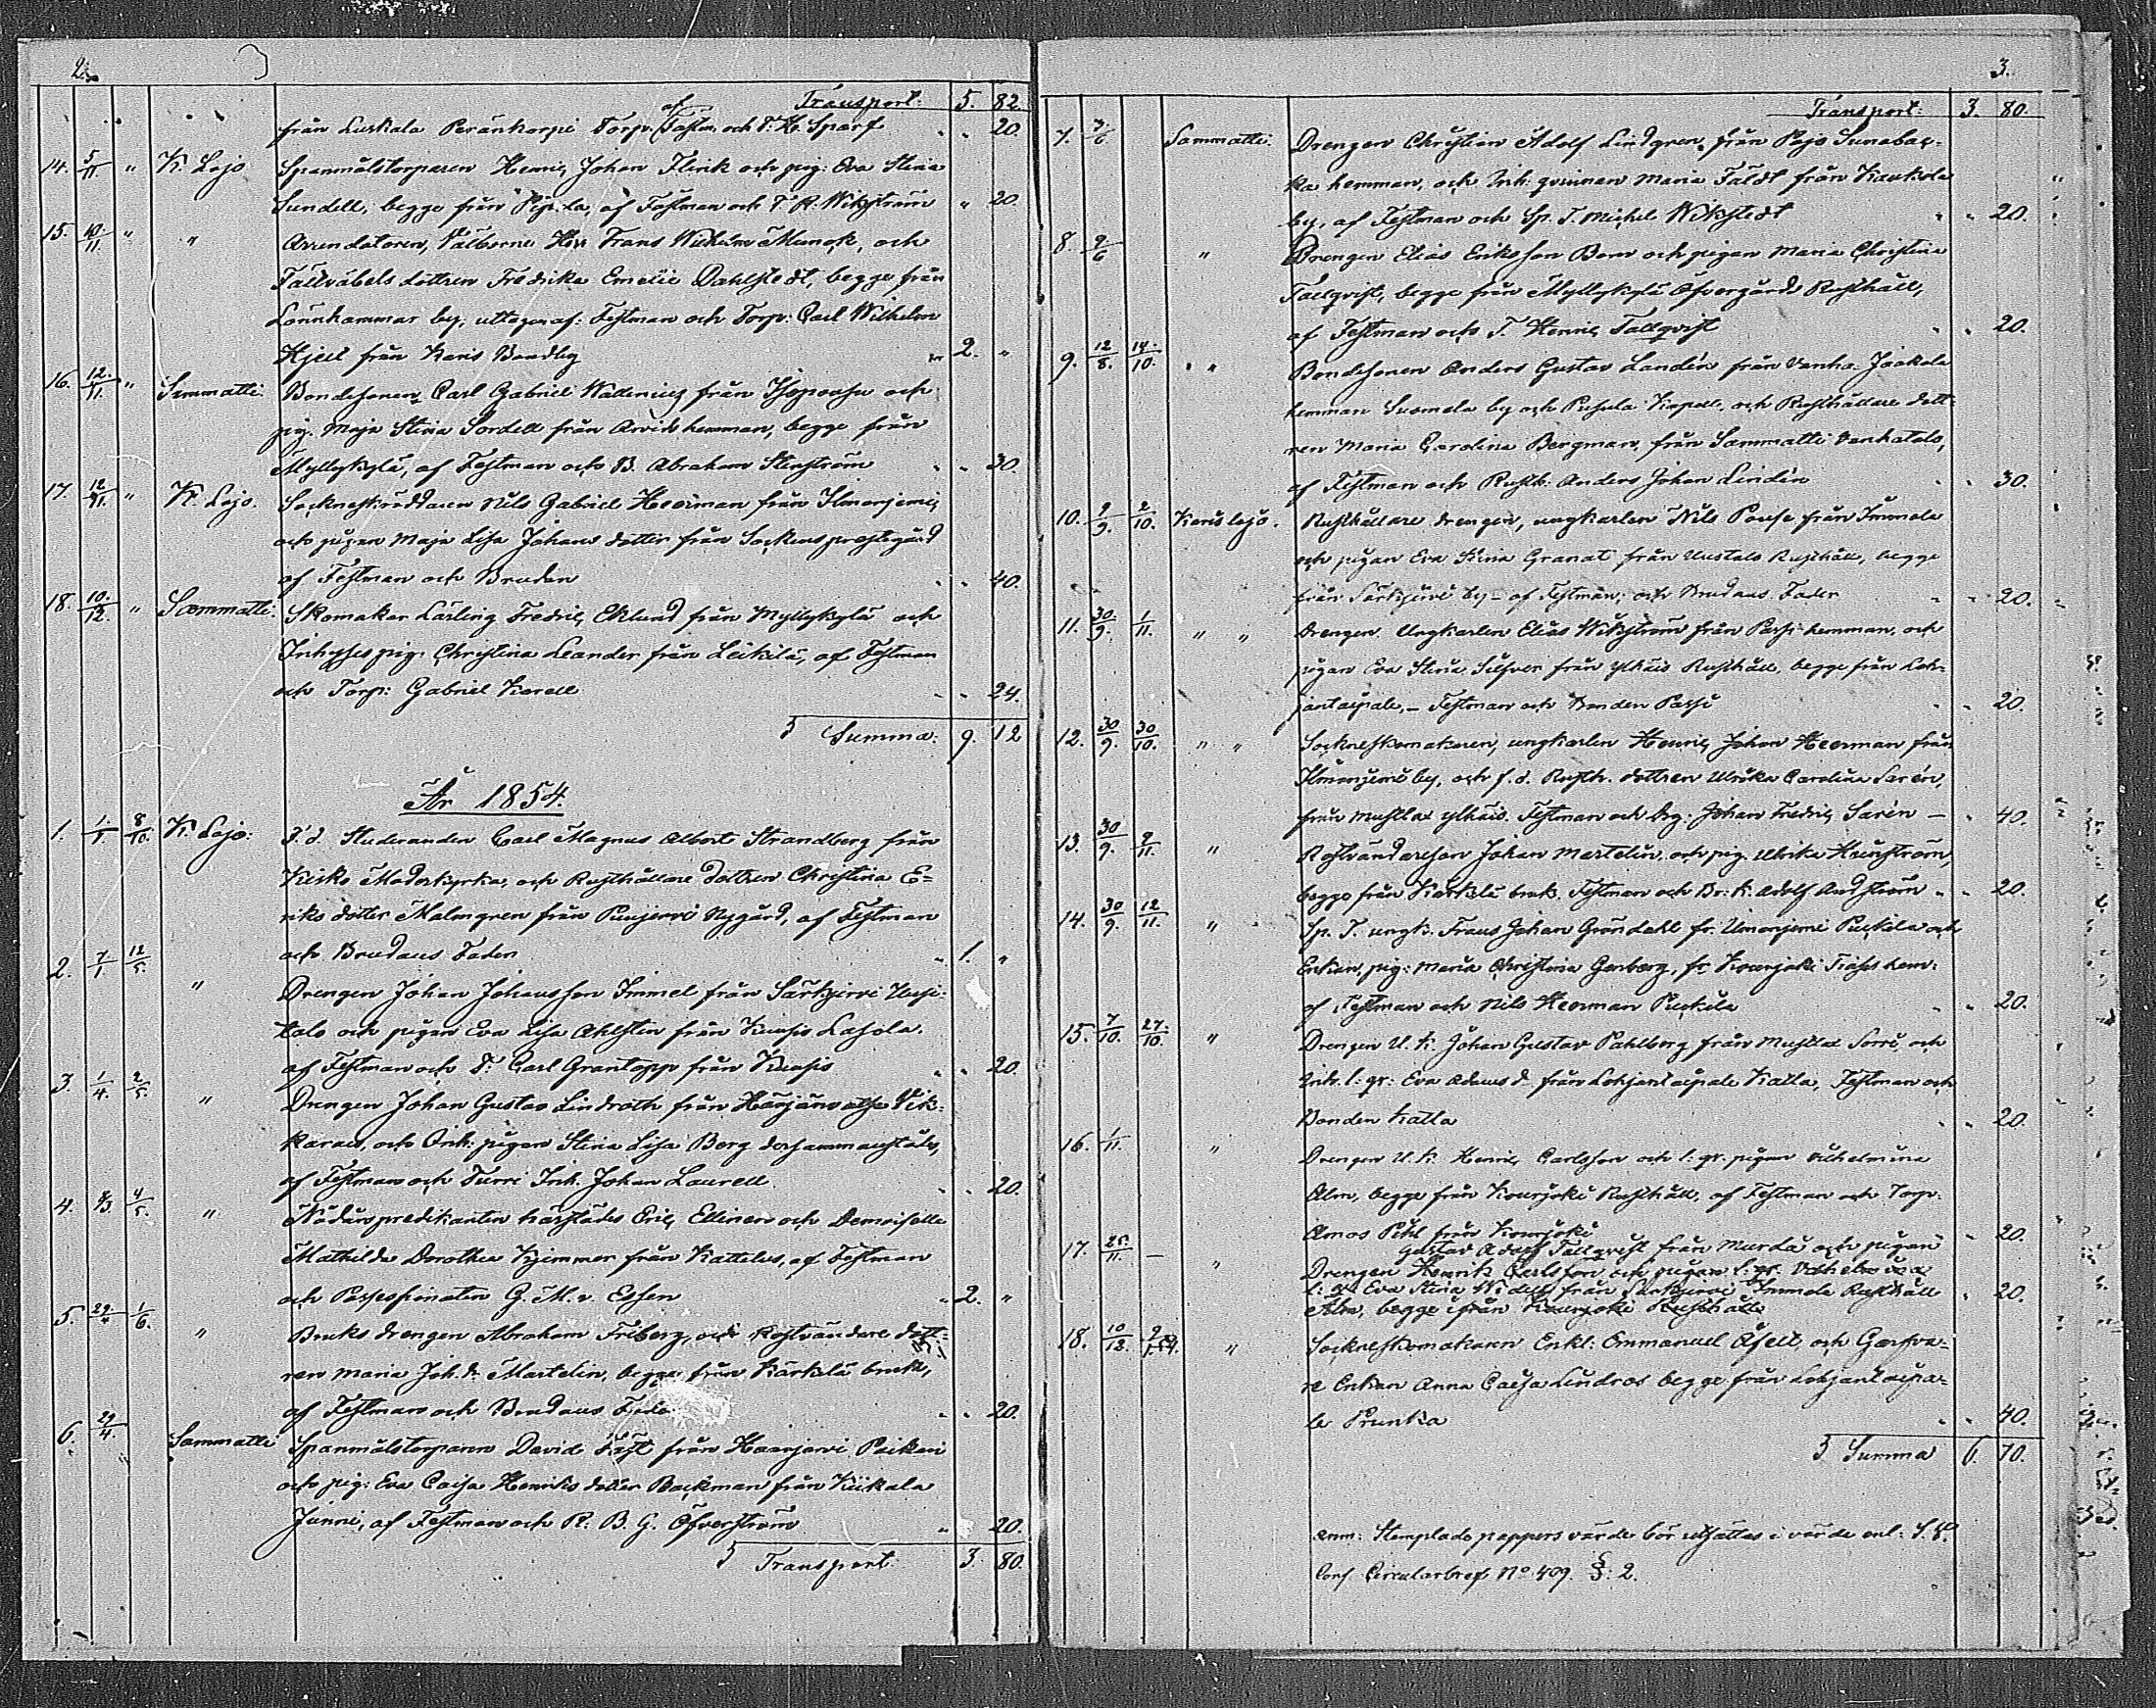 2.
Transport: 5. 82.
från Luskala Peränkorpi Torp. af Fästm. och T. H. Sparf " " 20.
14. 5/11 " K. Lojo Spanmålstorparen Henric Johan Flink och pig: Eva Stina
Sundell, begge från af Fästman och T. A. Wikström " 20.
15. 10/11 " " Arrendatoren, Välborne Herr Frans Wilhelm Munck, och
Fältväbels dottren Fredrika Emelie Dahlstedt, begge från
Lönnhammar by, uttagen af: Festman och Torp: Carl Wilhelm
Hjelt från Karis Bondby 2. "
16. 12/11 " Sammatti Bondesonen Carl Gabriel Wallenius från och
pig. Maja Stina Sordell från Arvids hemman, begge från
Myllykylä, af Festman och B. Abraham Stenström " " 30.
17. 12/11 " K. Lojo. Sockneskräddaren Nils Gabriel Heerman från Ilmonjemi,
och pigan Maja Lisa Johans dotter från Sockens prestegård
af Festman och Bruden " " 40.
18. 10/12 " Sammatti: Skomakar Lärling Fredric Eklund från Myllykylä och
Inhyses pig: Christina Leander från Leikilä, af Festman
och Torp: Gabriel Karell " " 24.
Summa: 9. 12
År 1854.
1. 1/1. 8/10. K. Lojo: F. d. Studeranden Carl Magnus Albert Strandberg från
Kisko Moderkyrka, och Rusthållare dottren Christina E-
riks dotter Malmgren från Puujervi Nygård, af Festman
och Brudens Fader " 1. "
2. 7/1 12/5. " Drengen Johan Johansson Immel från Särkjervi Uusi-
talo och pigan Eva Lisa Ahlsten från Kuusis Lasola.
af Festman och T: Carl Grantopp från Kuusis " " 20.
3. 1/4. 2/5. " Drengen Johan Gustav Lindroth från Härjänvatsa Vik-
karais, och Inh: pigan Stina Lisa Berg dersammastädes,
af Festman och Turri Inh. Johan Laurell " " 20.
4. 4/5. " Nådårspredikanten härstädes Eric Ellinen och Demoiselle
Mathilda Dorothea Kjimmer från Kattelus, af Festman
och Possessionaten G. M. v. Essen " 2. "
5. 29/4 1/6. " Bruks drengen Abraham Friberg, och Rostvändare dott-
ren Maria Joh. d: Martelin, begge från Kärkelä bruk,
af Festman och Brudens Fader " " 20.
6. 29/4. Sammatti Spanmålstorparen David Fäst från Haarjärvi Peikari
och pig: Eva Caisa Henriks dotter Backman från Kiikala
Junni, af Festman och R: B. G. Öfverström " 20.
Transport: 3. 80.
3.
Transport: 3. 80.
7. 7/6 Sammatti. Drengen Christian Adolf Lindgren, från Pojo Sunnabac-
ka hemman, och Inh: qvinnan Maria Fäldt från Kaukola
by, af Festman och Sp. T. Michel Wikstedt " " 20.
8. 9/6 " Drengen Elias Eriksson Born och pigan Maria Christina
Tallqvist, begge från Myllykylä Öfvergårds Rusthåll,
af Festman och T. Henric Tallqvist " " 20.
9. 12/8. 14/10. " " Bondesonen Anders Gustav Landén från Vanha Jaakola
hemman Suomela by och Pusula Kapell, och Rusthållare dott-
ren Maria Carolina Bergman, från Sammatti Vanhatalo,
af Festman och Rusth: Anders Johan Lindén " " 30.
10. 9/9. 2/10. Karislojo. Rusthållare drengen, ungkarlen Nils Pouse från Immola
och pigan Eva Stina Granat från Uustalo Rusthåll, begge
från Särkjervi by – af Festman, och Brudens Fader " " 20.
11. 30/9. 1/11. " " Drengen Ungkarlen Elias Wikström från Passi hemman, och
pigan Eva Stina Silfver från Ylhäis Rusthåll, begge från Loh-
jantaipale, – Festman och Bonden Passi " " 20.
12. 30/9. 30/10. " " Socknesskomakaren, ungkarlen Henric Johan Heerman från
Ilmonjemi by, och f. d. Rusth. dottren Ulrika Carolina Sarén,
från Mustlax Ylhäis. Festman och Drg: Johan Fredric Sarén – " 40.
13. 30/9. 9/11. " Rostvändareson Johan Martelin, och pig. Ulrika
begge från Kärkelä bruk. Festman och Br: k. Adolf Ahlström " " 20.
14. 30/9. 12/11. " Sp. T. ungk. Frans Johan Gröndahl fr. Ilmonjemi Puckila och
Enkan, pig: Maria Christina Genberg, fr. Kourjoki hem:
af Festman och Nils Heerman Puckila " " 20.
15. 7/10. 27/10. " Drengen U. K. Johan Gustav Pahlberg från Mustlax Sorri, och
Inh. l: qv: Eva Adams d. från Lohjantaipale Katla, Festman och
Bonden Katla " " 20.
16. 1/11. " Drengen U. K. Henric Carlsson och l: qv. pigan Vilhelmina
Alm, begge från Kourjoki Rusthåll, af Festman och Torp:
Amos Pihl från Kourjoki " 20.
17. 25/11. – " Gustav Adolf Tallqvist från Murda och pigan
Drengen Henrik Carlsson och pigan l. qv. Vilhelmina
l: qv Eva Stina från Särkjervi Immola Rusthåll " 20.
Alm, begge ifrån Kourjoki Rusthåll
18. 10/12. " Socknesskomakaren Enkl: Emmanuel Åsell, och Garfva-
re Enkan Anna Caisa Lindros begge från Lohjantaipa-
le Prunka " " 40.
Summa 6. 70.
Anm: Stemplade pappers värde bör utsättas i värde enl:
Conf Circulairbref No 409. §: 2.